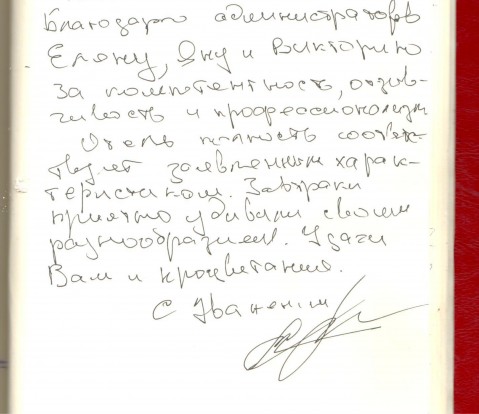 Благодарю администраторов
Елену, Яну и Викторию
за компетентность, отзыв-
чивость и профессионализм
Очень соответ-
ствует заявленным харак-
теристикам. Завтраки
приятно удивили своим
разнообразием. Удачи
Вам и процветания.
С Уважением